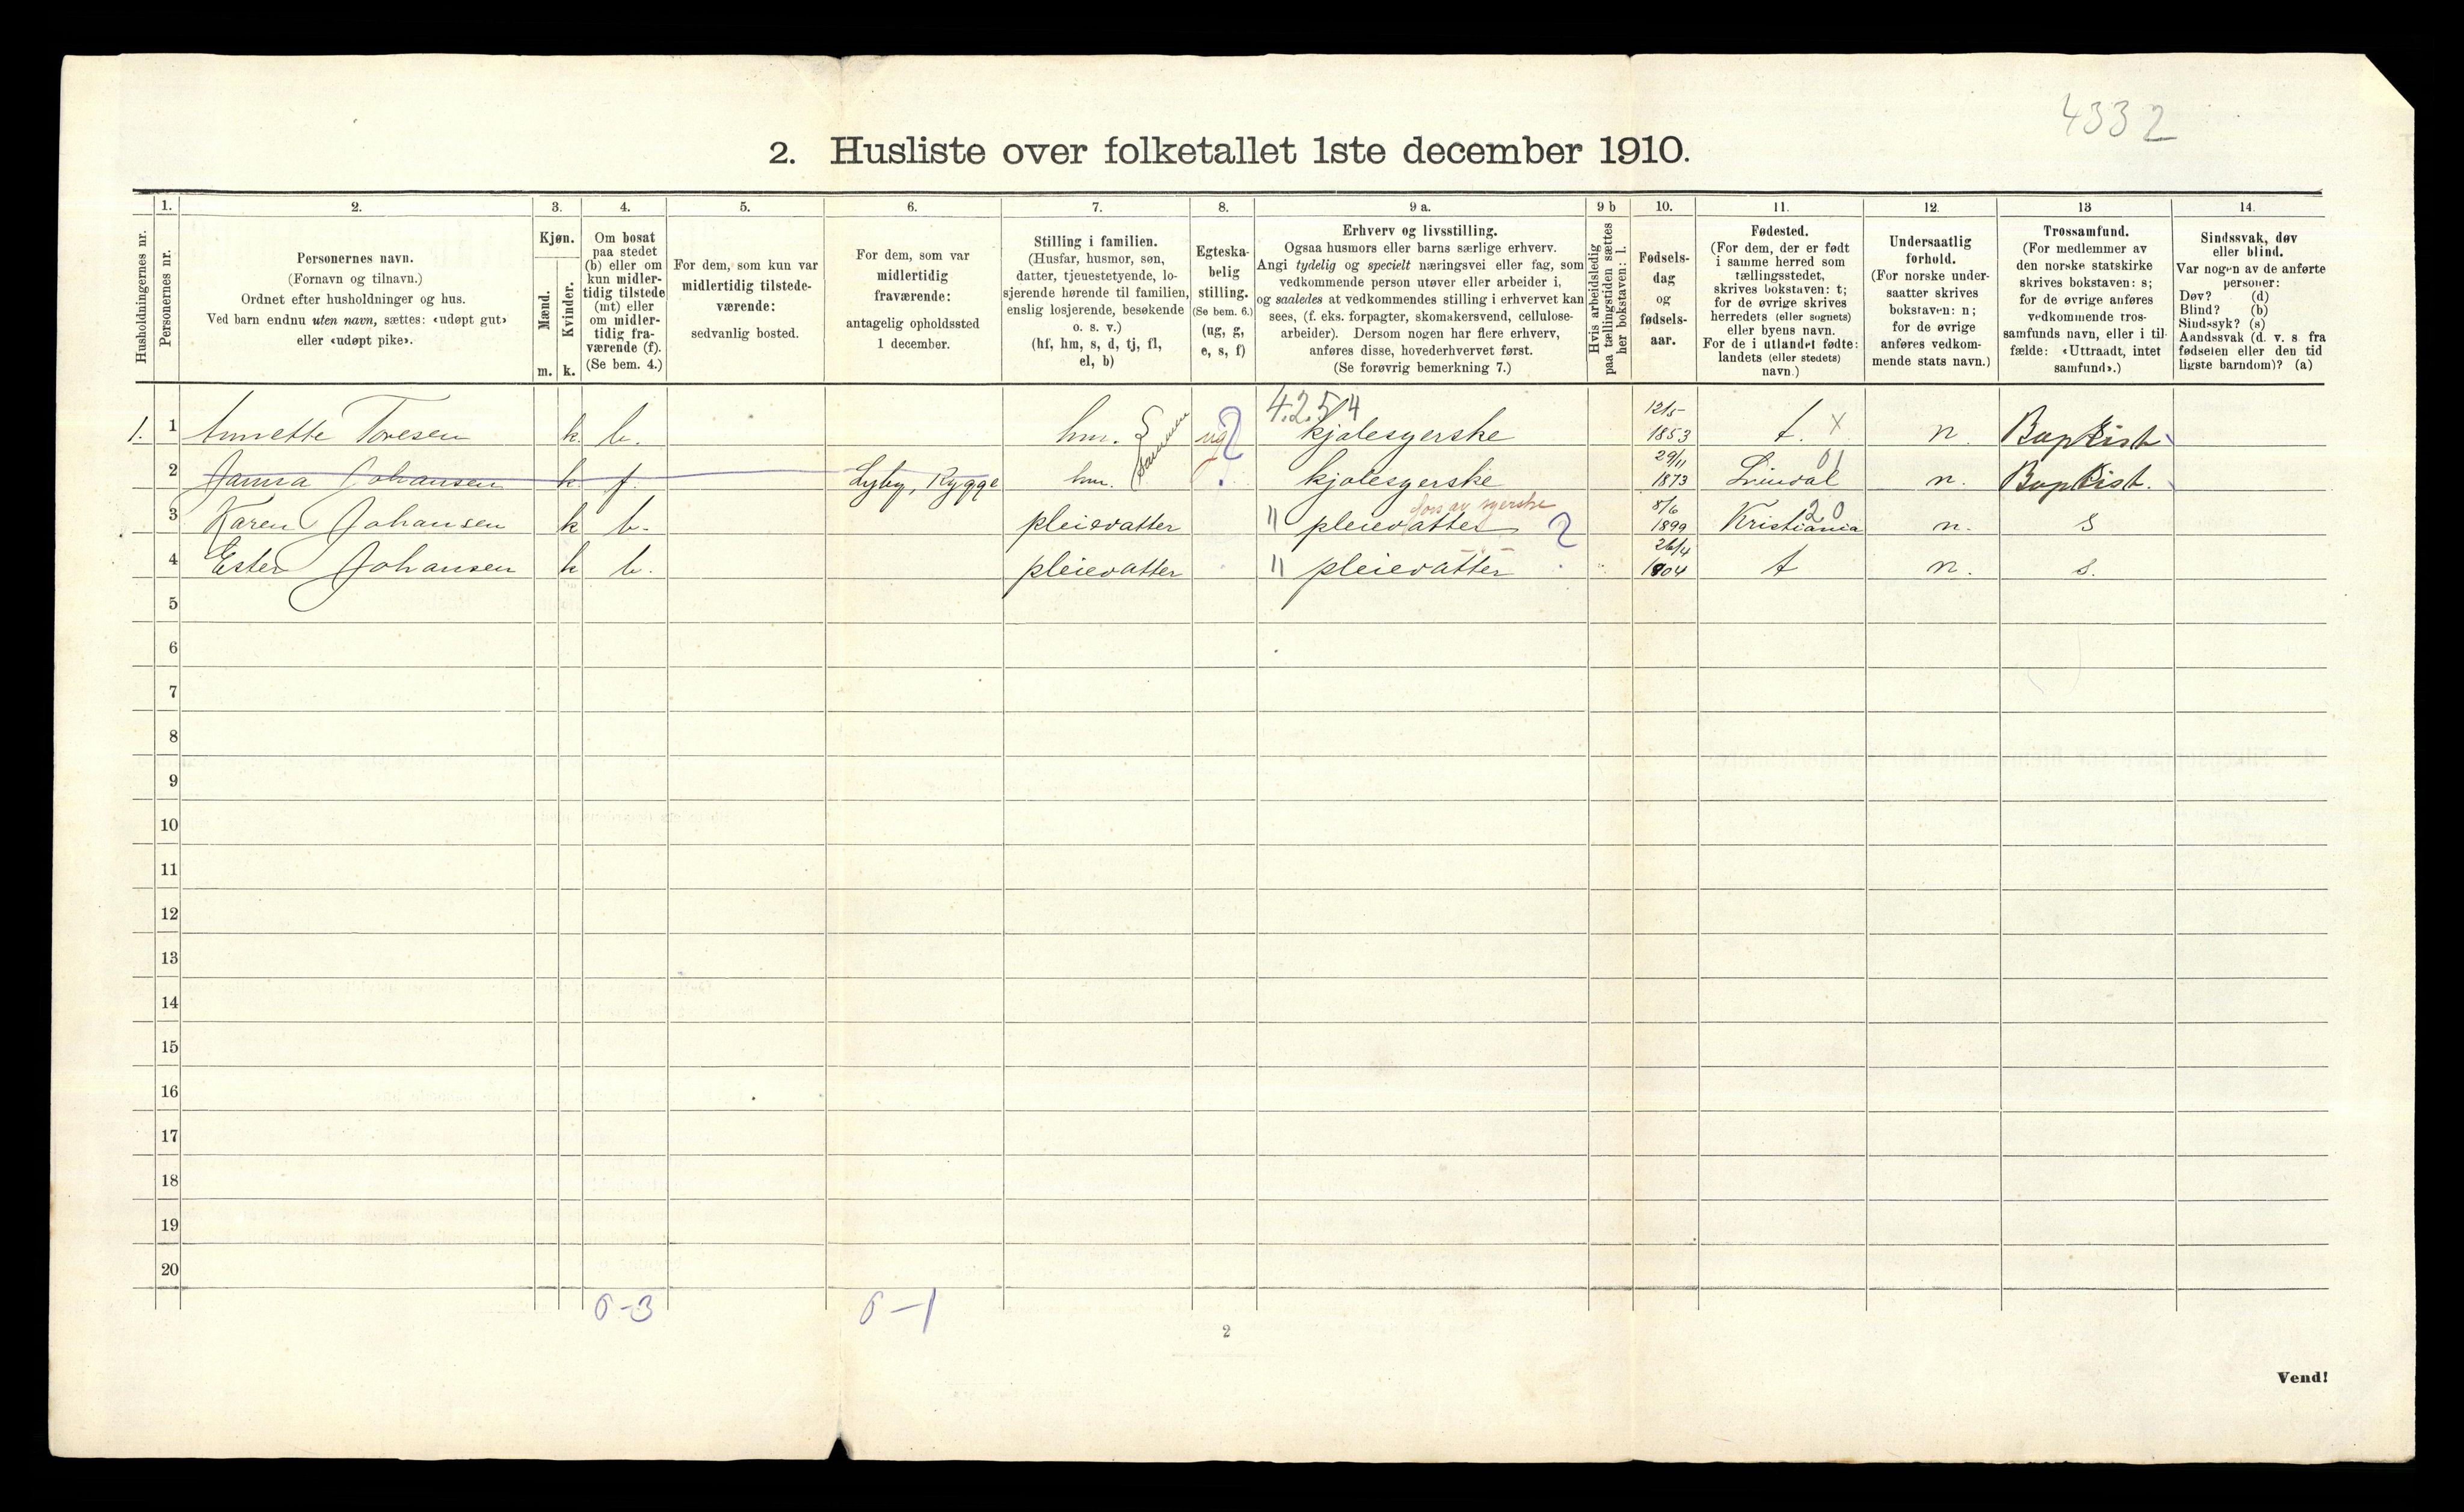 4332
2. Husliste over folketallet 1ste december 1910.
1. 2. 3. 4. 5. 6. 7. 8. 9 a. 9 b 10. 11. 12. 13 14.
Husholdningernes nr.
Personernes nr.
Personernes navn.
(Fornavn og tilnavn.)
Ordnet efter husholdninger og hus.
Ved barn endnu uten navn, sættes: «udøpt gut»
eller «udøpt pike».
Kjøn.
Mænd.
Kvinder.
m. k.
Om bosat
paa stedet
(b) eller om
kun midler-
tidig tilstede
(mt) eller
om midler-
tidig fra-
værende (f).
(Se bem. 4.)
For dem, som kun var
midlertidig tilstede-
værende:
sedvanlig bosted.
For dem, som var
midlertidig
fraværende:
antagelig opholdssted
1 december.
Stilling i familien.
(Husfar, husmor, søn,
datter, tjenestetyende, lo-
sjerende hørende til familien,
enslig losjerende, besøkende
o. s. v.)
(hf, hm, s, d, tj, fl,
el, b)
Egteska-
belig
stilling.
(Se bem. 6.)
(ug, g,
e, s, f)
Erhverv og livsstilling.
Ogsaa husmors eller barns særlige erhverv.
Angi tydelig og specielt næringsvei eller fag, som
vedkommende person utøver eller arbeider i,
og saaledes at vedkommendes stilling i erhvervet kan
sees, (f. eks. forpagter, skomakersvend, cellulose-
arbeider). Dersom nogen har flere erhverv,
anføres disse, hovederhvervet først.
(Se forøvrig bemerkning 7.)
Hvis arbeidsledig
paa tællingstiden sættes
her bokstaven: l.
Fødsels-
dag
og
fødsels-
aar.
Fødested.
(For dem, der er født
i samme herred som
tællingsstedet,
skrives bokstaven: t;
for de øvrige skrives
herredets (eller sognets)
eller byens navn.
For de i utlandet fødte:
landets (eller stedets)
navn.)
Undersaatlig
forhold.
(For norske under-
saatter skrives
bokstaven: n;
for de øvrige
anføres vedkom-
mende stats navn.)
Trossamfund.
(For medlemmer av
den norske statskirke
skrives bokstaven: s;
for de øvrige anføres
vedkommende tros-
samfunds navn, eller i til-
fælde: «Uttraadt, intet
samfund».)
Sindssvak, døv
eller blind.
Var nogen av de anførte
personer:
Døv? (d)
Blind? (b)
Sindssyk? (s)
Aandssvak (d. v. s. fra
fødselen eller den tid-
ligste barndom)? (a)
4.2.5 4
1. 1 Annette Toresen k. b. hm. ug ? kjolesyerske 12/5 1853 t. x n. Baptist
2 Johansen k f. Lyby, Rygge hm. kjolesyerske 29/11 1873 01 n. Baptist.
3 Karen Johansen k b. pleiedatter " pleiedatter ? 8/6 1899 Kristiania 20 n. s
4 Ester Johansen k b. pleiedatter " pleiedatter 26/4 1904 t n. s.
5
6
7
8
9
10
11
12
13
14
15
16
17
18
19
20
0-3 0-1
2
Vend!